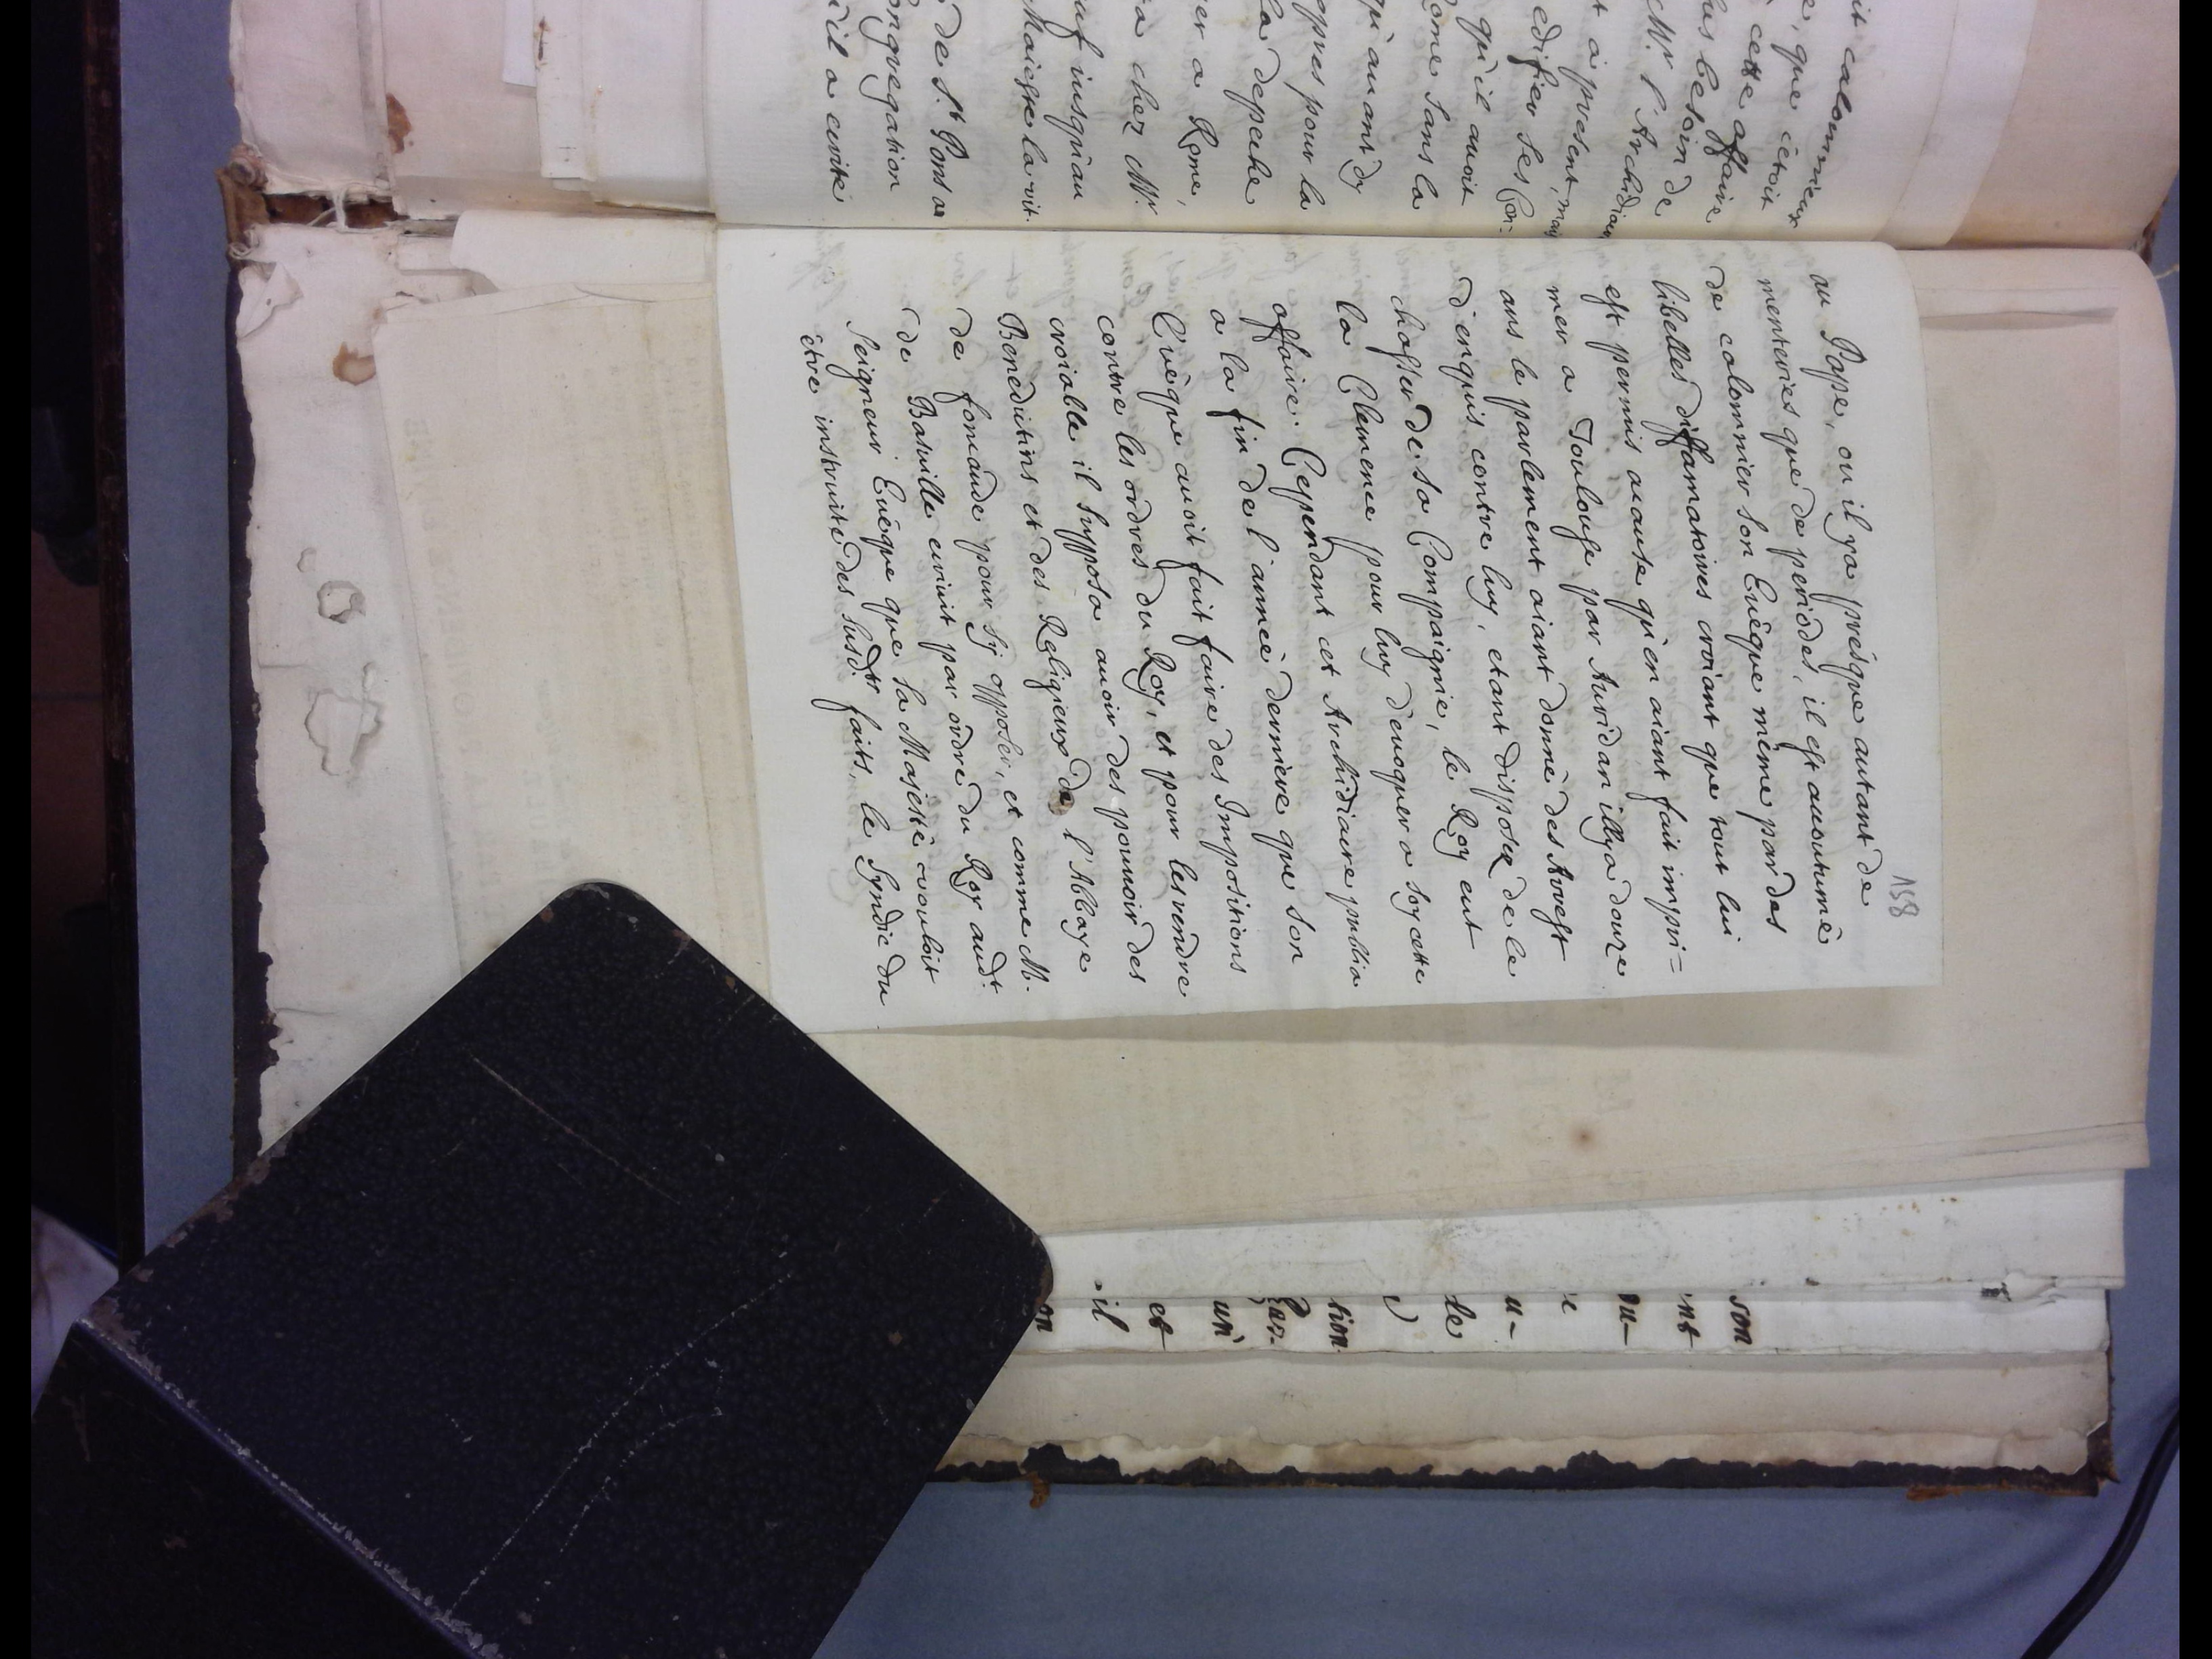 it calomnieux
e, que cètoit
cette affaire
us besoin de
Mr l'Archidiacr
t à present, mais
edifier ses Con-
qu'il auoit
ome sans la
qu'auant dy
eppres pour la
La depeche
er a Rome,
a chez Mr
auf iusqu'au
Maiesse la vit.
de St. Pons a
ongregation
u'il a evité
158
au Pape, ou il ya presque autant de
menteries que de periodes, il est acoutumé
de calomnier son Euêque même par des
libelles diffamatoires croiant que tout lui
est permis acause qu'en aiant fait impri=
mer a Toulouse par Auridan illya douze
ans le parlement aiant donné des Arrest
d'enquis contre luy, etant disposez de le
chasser de sa Compaignie, le Roy eut
la Clemence pour luy d'euoquer a soy cette
affaire. Ceppendant cet Archidiacre publia
a la fin de l'année derniere que son
Euêque auoit fait faire des Impositions
contre les ordres du Roy, et pour les rendre
croiable il supposa auoir des pouuoir des
Benedictins et des Religieux de l'Abbaye
de foncaude pour sÿ opposer, et comme M.
de Basuille eccriuit par ordre du Roy audt.
Seigneur Euêque que sa Majesté vouloit
être instruite des susdts faits, le Syndic du
son
nt
ou-
e
u-
le
tion
un
et
il
on